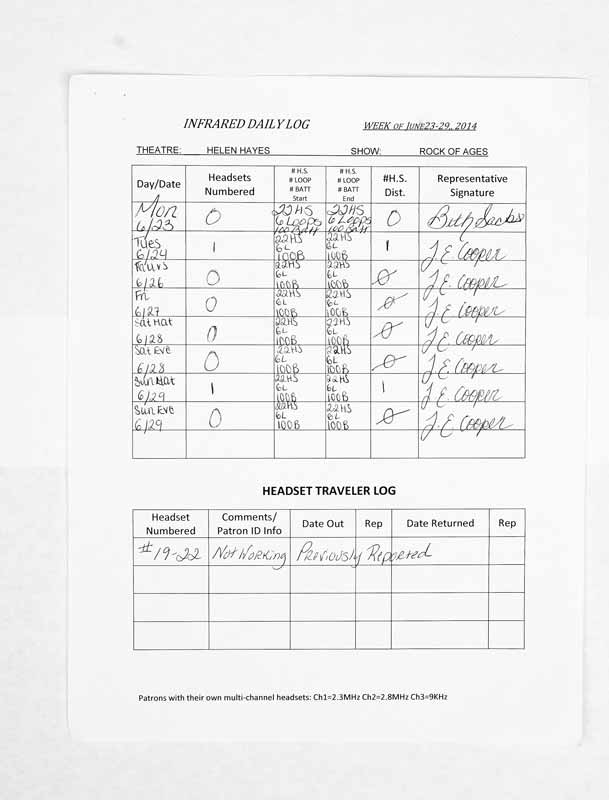 INFRARED DAILY LOG WEEK OF JUNE 23-29,, 2014
THEATRE: HELEN HAYES SHOW: ROCK OF AGES
Day/Date Headsets Numbered # H.S. # LOOP # BATT Start # H.S. # LOOP # BATT End #H.S. Dist. Representative Signature
Mon 6/23 0 22HS 6 Loops 100 Batt 22HS 6 Loops 100 Batt 0 Beth Sacks
Tues 6/24 1 22HS 6L 100B 22HS 6L 100B 1 J.E. Cooper
Thurs 6/26 0 22HS 6L 100B 22HS 6L 100B 0 J.E. Cooper
Fri 6/27 0 22HS 6L 100B 22HS 6L 100B 0 J.E. Cooper
Sat Mat 6/28 0 22HS 6L 100B 22HS 6L 100B 0 J.E. Cooper
Sat Eve 6/28 0 22HS 6L 100B 22HS 6L 100B 0 J.E. Cooper
Sun Mat 6/29 1 22HS 6L 100B 22HS 6L 100B 1 J.E. Cooper
Sun Eve 6/29 0 22HS 6L 100B 22HS 6L 100B 0 J.E. Cooper
HEADSET TRAVELER LOG
Headset Numbered Comments/ Patron ID Info Date Out Rep Date Returned Rep
# 19-22 Not Working Previously Reported
Patrons with their own multi-channel headsets: Ch1=2.3MHz Ch2=2.8MHz Ch3=9KHz